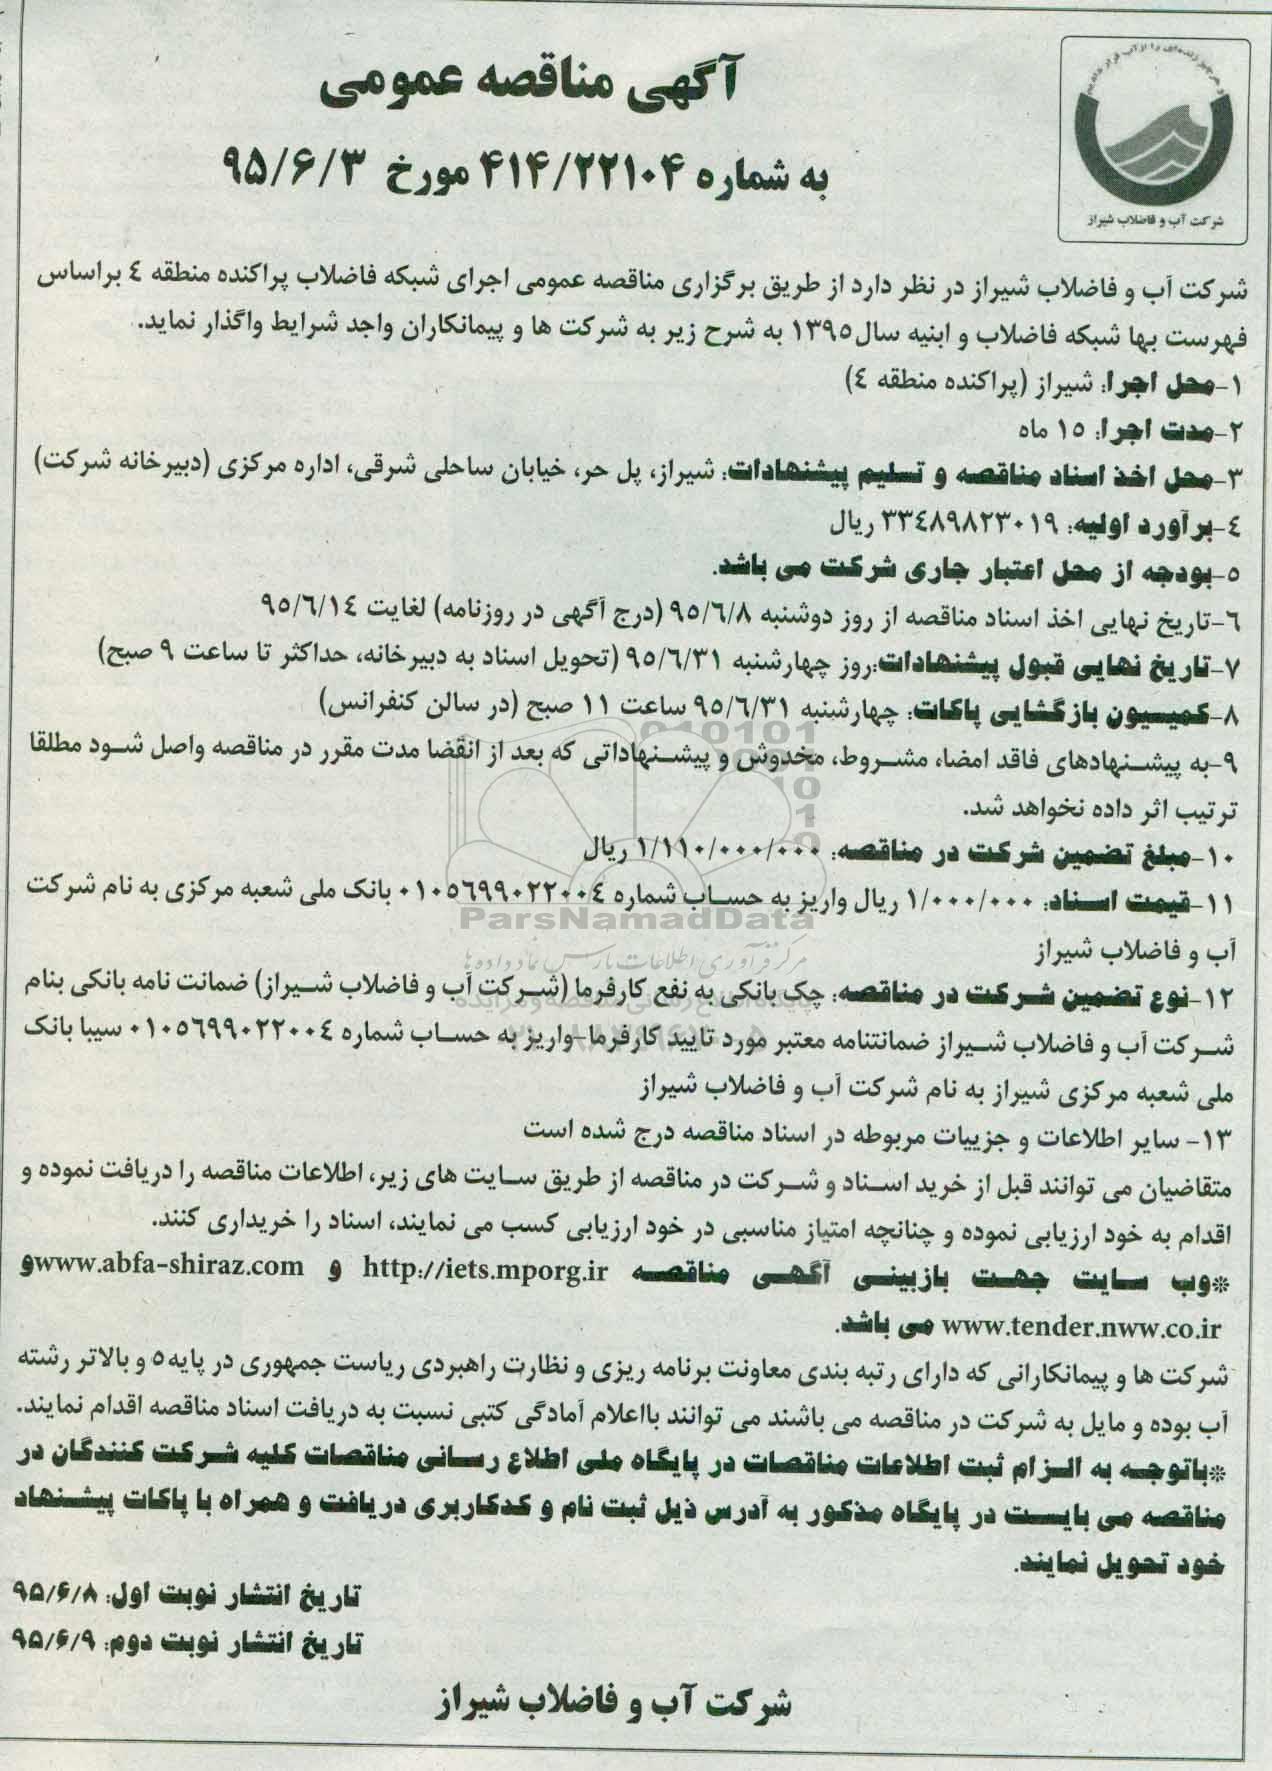 آگهی مناقصه عمومی
به شماره ۴۱۴/۲۲۱۰۴ مورخ ۹۵/۶/۳
شرکت آب و فاضلاب شیراز
شرکت آب و فاضلاب شیراز در نظر دارد از طریق برگزاری مناقصه عمومی اجرای شبکه فاضلاب پراکنده منطقه ٤ براساس
فهرست بها شبکه فاضلاب و ابنیه سال ۱۳۹۵ به شرح زیر به شرکت ها و پیمانکاران واجد شرایط واگذار نماید.
۱-محل اجرا: شیراز (پراکنده منطقه ٤)
۲-مدت اجرا: ۱۵ ماه
۳-محل اخذ اسناد مناقصه و تسلیم پیشنهادات: شیراز، پل حر، خیابان ساحلی شرقی، اداره مرکزی (دبیرخانه شرکت)
٤-برآورد اولیه: ۳۳٤۸۹۸۲۳۰۱۹ ریال
۵-بودجه از محل اعتبار جاری شرکت می باشد.
٦-تاریخ نهایی اخذ اسناد مناقصه از روز دوشنبه ۹۵/٦/۸ (درج آگهی در روزنامه) لغایت ۹۵/٦/۱٤
۷-تاریخ نهایی قبول پیشنهادات:روز چهارشنبه ۹۵/٦/۳۱ (تحویل اسناد به دبیرخانه، حداکثر تا ساعت ۹ صبح)
۸-کمیسیون بازگشایی پاکات: چهارشنبه ۹۵/٦/۳۱ ساعت ۱۱ صبح (در سالن کنفرانس)
۹-به پیشنهادهای فاقد امضا، مشروط، مخدوش و پیشنهاداتی که بعد از انقضا مدت مقرر در مناقصه واصل شود مطلقا
ترتیب اثر داده نخواهد شد.
۱۰-مبلغ تضمین شرکت در مناقصه: ۱/۱۱۰/۰۰۰/۰۰۰ ریال
۱۱-قیمت اسناد: ۱/۰۰۰/۰۰۰ ریال واریز به حساب شماره ۰۱۰۵٦۹۹۰۲۲۰۰٤ بانک ملی شعبه مرکزی به نام شرکت
ParsNamadData
آب و فاضلاب شیراز
مرکز فرآوری اطلاعات پارس نماد داده ها
۱۲-نوع تضمین شرکت در مناقصه: چک بانکی به نفع کارفرما (شرکت آب و فاضلاب شیراز) ضمانت نامه بانکی بنام
شرکت آب و فاضلاب شیراز ضمانتنامه معتبر مورد تایید کارفرما-واریز به حساب شماره ۰۱۰۵٦۹۹۰۲۲۰۰٤ سیبا بانک
ملی شعبه مرکزی شیراز به نام شرکت آب و فاضلاب شیراز
۱۳- سایر اطلاعات و جزییات مربوطه در اسناد مناقصه درج شده است
متقاضیان می توانند قبل از خرید اسناد و شرکت در مناقصه از طریق سایت های زیر، اطلاعات مناقصه را دریافت نموده و
اقدام به خود ارزیابی نموده و چنانچه امتیاز مناسبی در خود ارزیابی کسب می نمایند، اسناد را خریداری کنند.
*وب سایت جهت بازبینی آگهی مناقصه http://iets.mporg.ir و www.abfa-shiraz.com و
www.tender.nww.co.ir می باشد.
شرکت ها و پیمانکارانی که دارای رتبه بندی معاونت برنامه ریزی و نظارت راهبردی ریاست جمهوری در پایه ۵ و بالاتر رشته
آب بوده و مایل به شرکت در مناقصه می باشند می توانند بااعلام آمادگی کتبی نسبت به دریافت اسناد مناقصه اقدام نمایند.
*باتوجه به الزام ثبت اطلاعات مناقصات در پایگاه ملی اطلاع رسانی مناقصات کلیه شرکت کنندگان در
مناقصه می بایست در پایگاه مذکور به آدرس ذیل ثبت نام و کدکاربری دریافت و همراه با پاکات پیشنهاد
خود تحویل نمایند.
تاریخ انتشار نوبت اول: ۹۵/۶/۸
تاریخ انتشار نوبت دوم: ۹۵/۶/۹
شرکت آب و فاضلاب شیراز